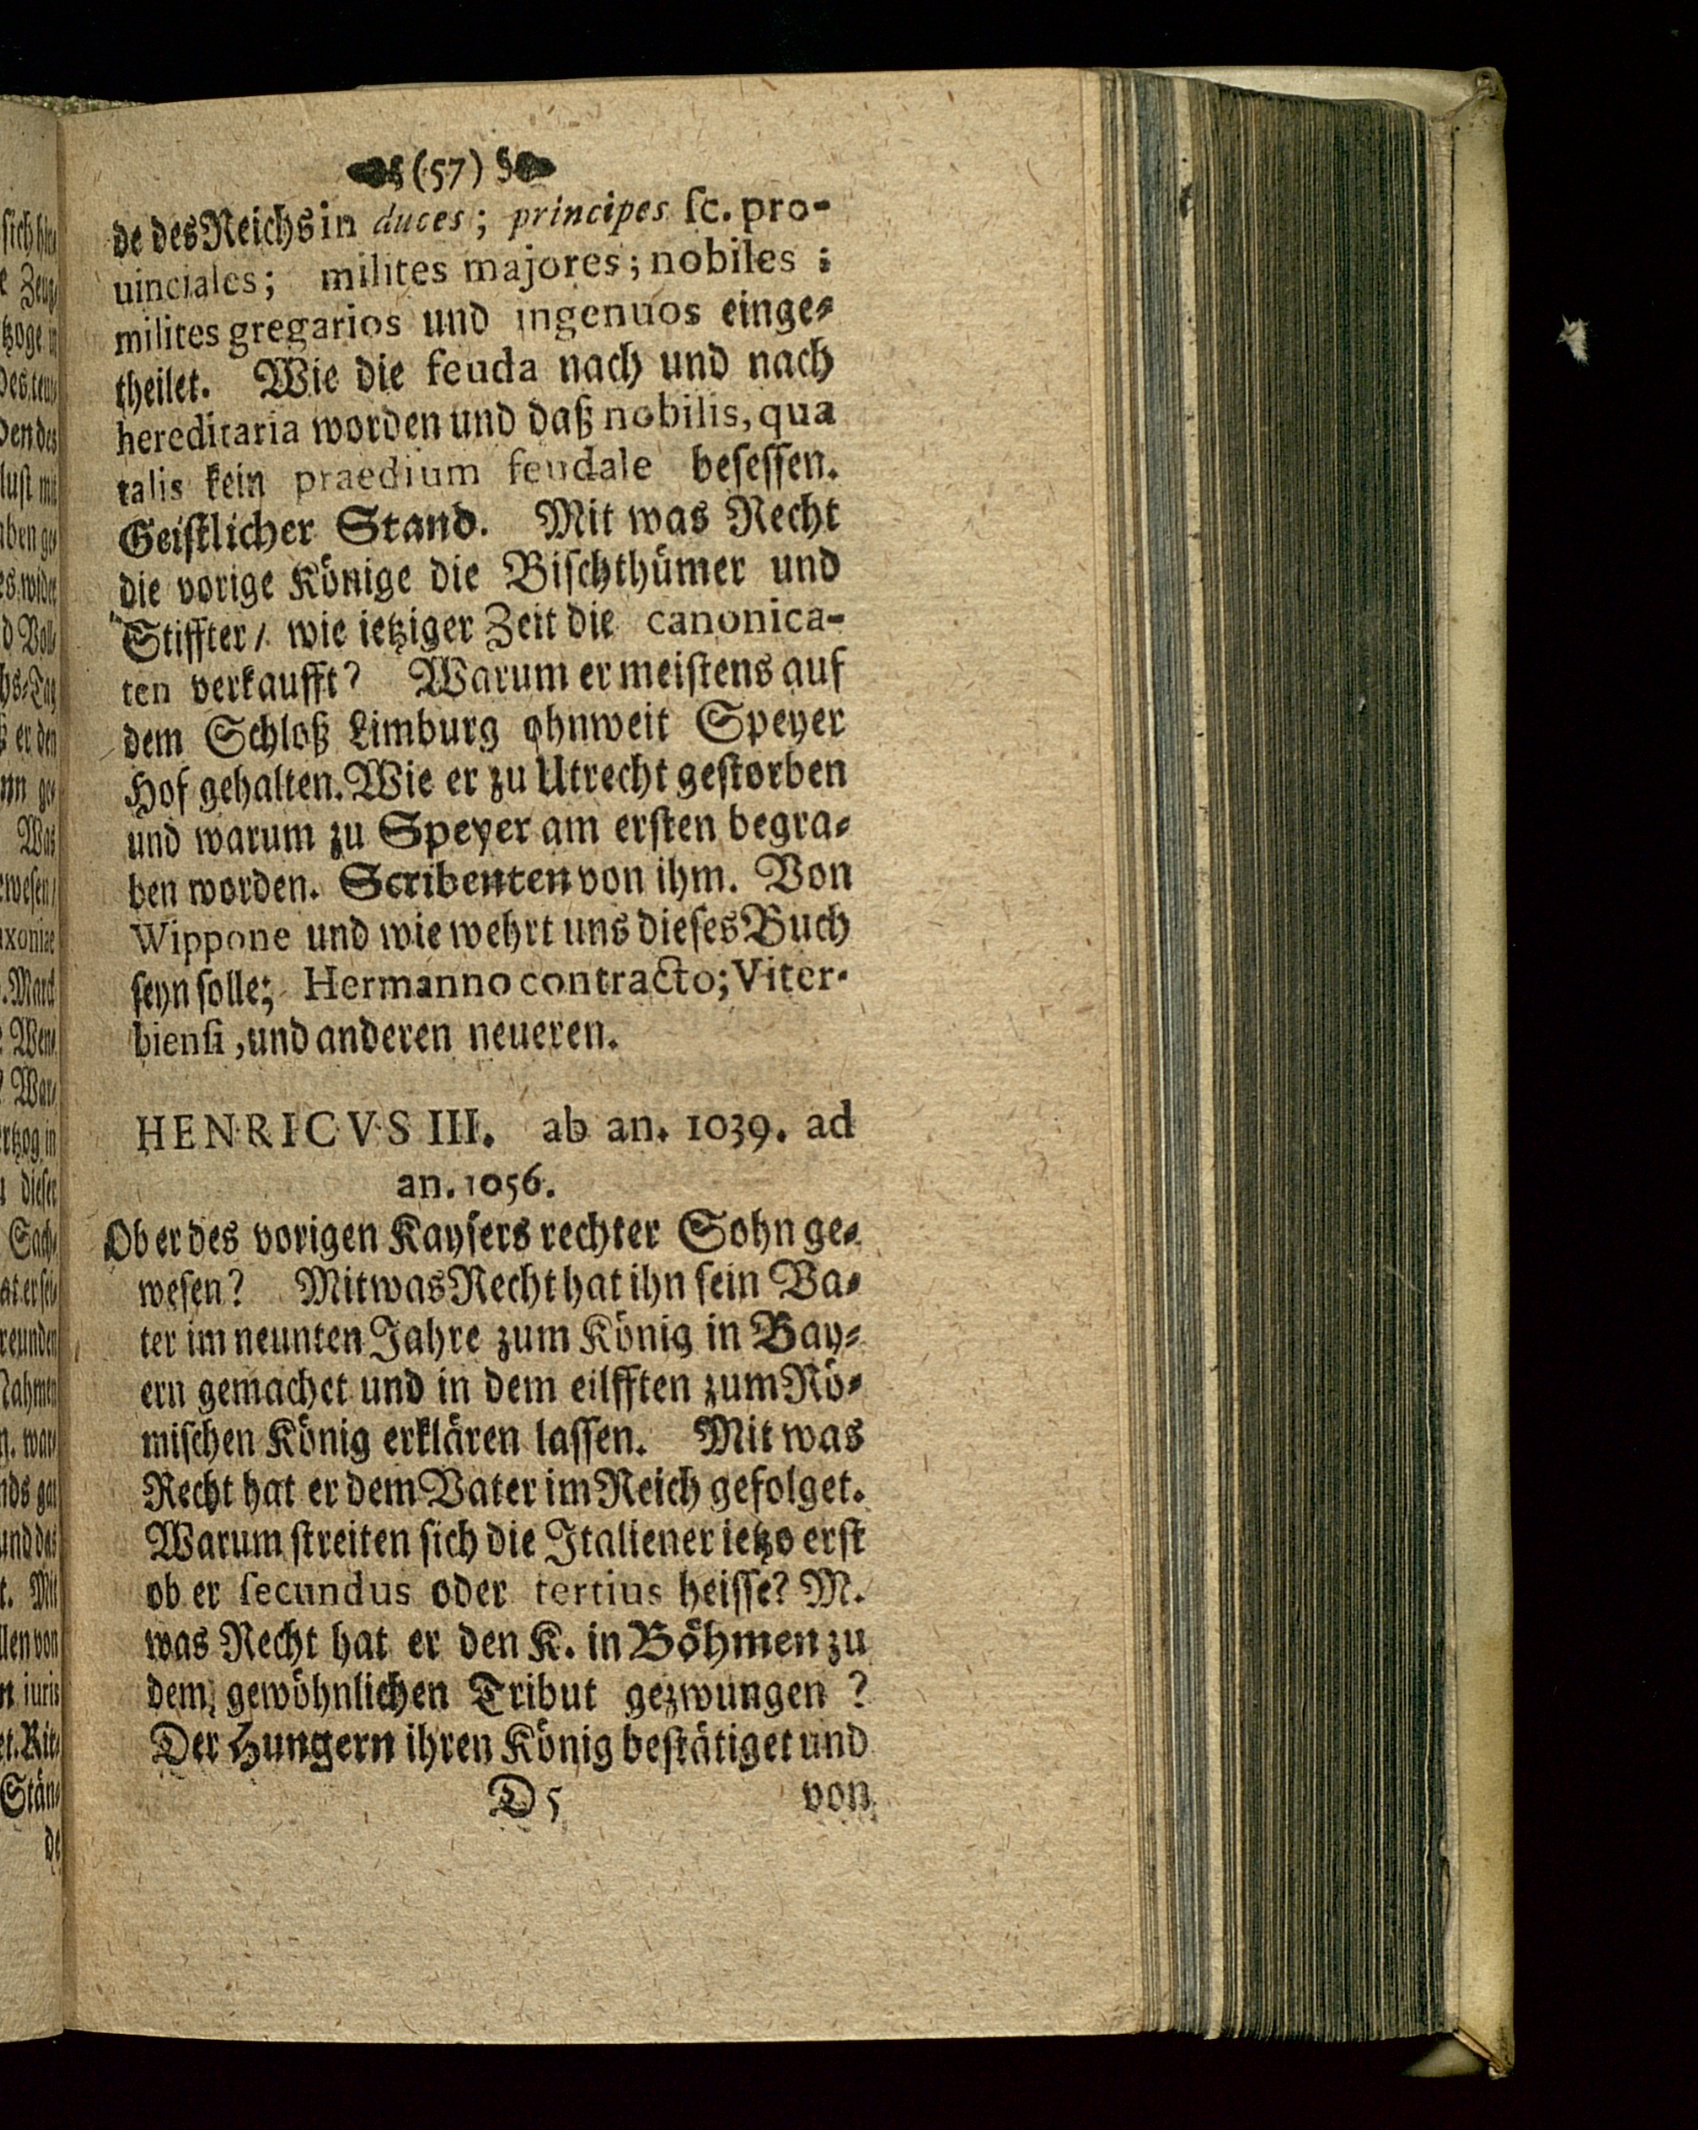 (57)
de des Reichs in duces; principes ſc. pro-
uinciales; milites majores; nobiles;
milites gregarios und ingenuos einge⸗
theilet. Wie die feuda nach und nach
hereditaria worden und daß nobilis, qua
talis kein praedium feudale beſeſſen.
Geiſtlicher Stand. Mit was Recht
die vorige Könige die Biſchthümer und
Stiffter/ wie ietziger Zeit die canonica-
ten verkaufft? Warum er meiſtens auf
dem Schloß Limburg ohnweit Speyer
Hof gehalten. Wie er zu Utrecht geſtorben
und warum zu Speyer am erſten begra⸗
ben worden. Scribenten von ihm. Von
Wippone und wie wehrt uns dieſes Buch
ſeyn ſolle; Hermanno contracto; Viter-
bienſi, und anderen neueren.
HENRICVS III. ab an. 1039. ad
an. 1056.
Ob er des vorigen Kayſers rechter Sohn ge⸗
weſen? Mit was Recht hat ihn ſein Va⸗
ter im neunten Jahre zum König in Bay⸗
ern gemachet und in dem eilfften zum Rö⸗
miſchen König erklären laſſen. Mit was
Recht hat er dem Vater im Reich gefolget.
Warum ſtreiten ſich die Italiener ietzo erſt
ob er ſecundus oder tertius heiſſe? M.
was Recht hat er den K. in Böhmen zu
dem gewöhnlichen Tribut gezwungen?
Der Hungern ihren König beſtätiget und
D 5 von